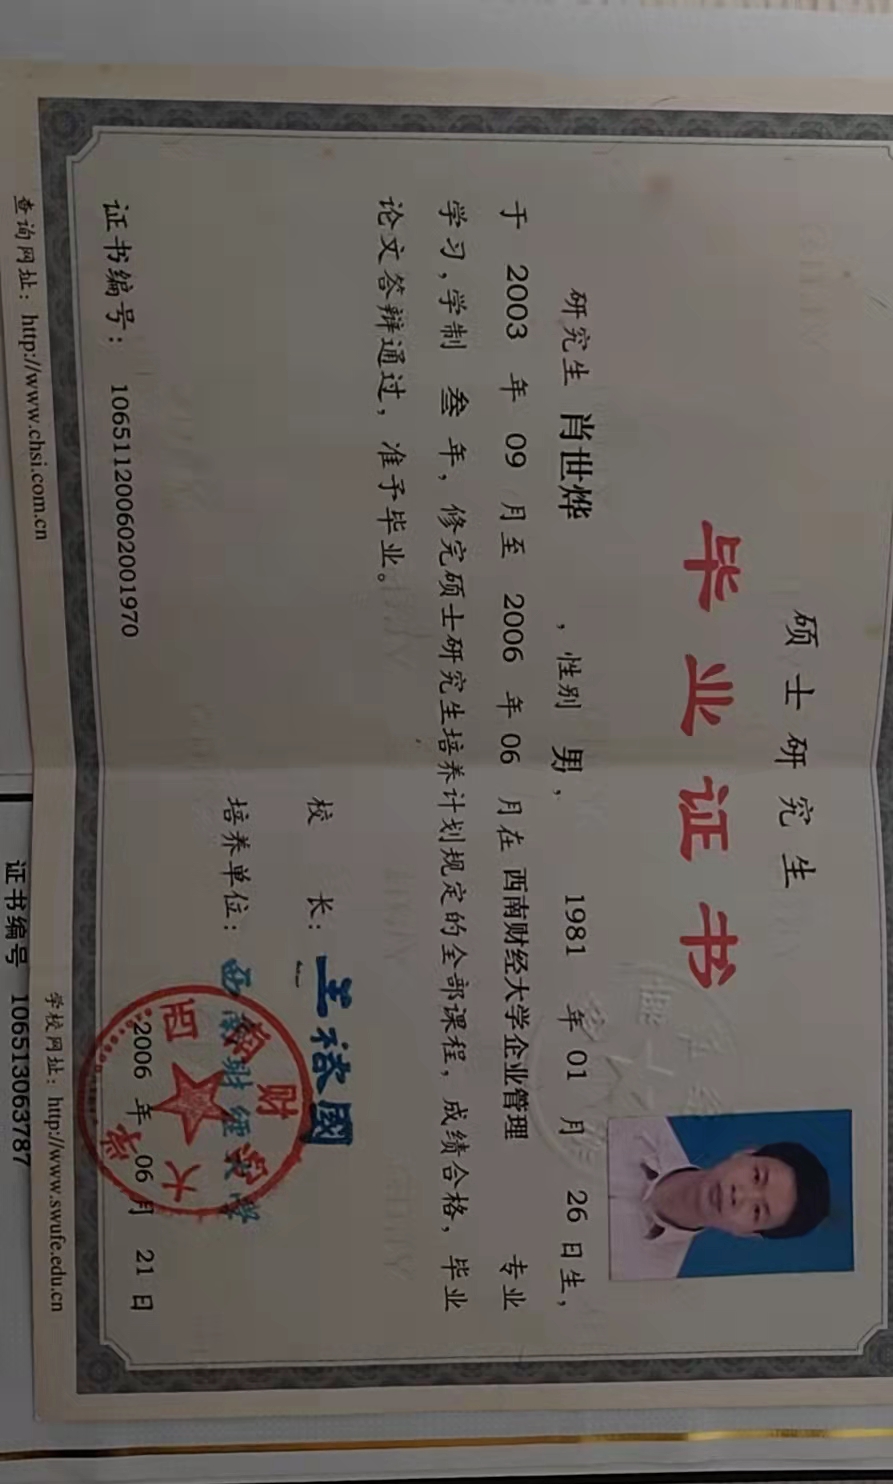 硕士研究生
毕业证书
研究生 肖世烨 ，性别 男， 1981 年 01 月 26 日生，
于 2003 年 09 月至 2006 年 06 月在 西南财经大学企业管理 专业
学习，学制 叁 年，修完硕士研究生培养计划规定的全部课程，成绩合格，毕业
论文答辩通过，准予毕业。
校 长：王裕國
培养单位：西南财经大学
西南财经大学
证书编号： 106511200602001970
2006 年 06 月 21 日
查询网址：http://www.chsi.com.cn
学校网址：http://www.swufe.edu.cn
证书编号 106513063787